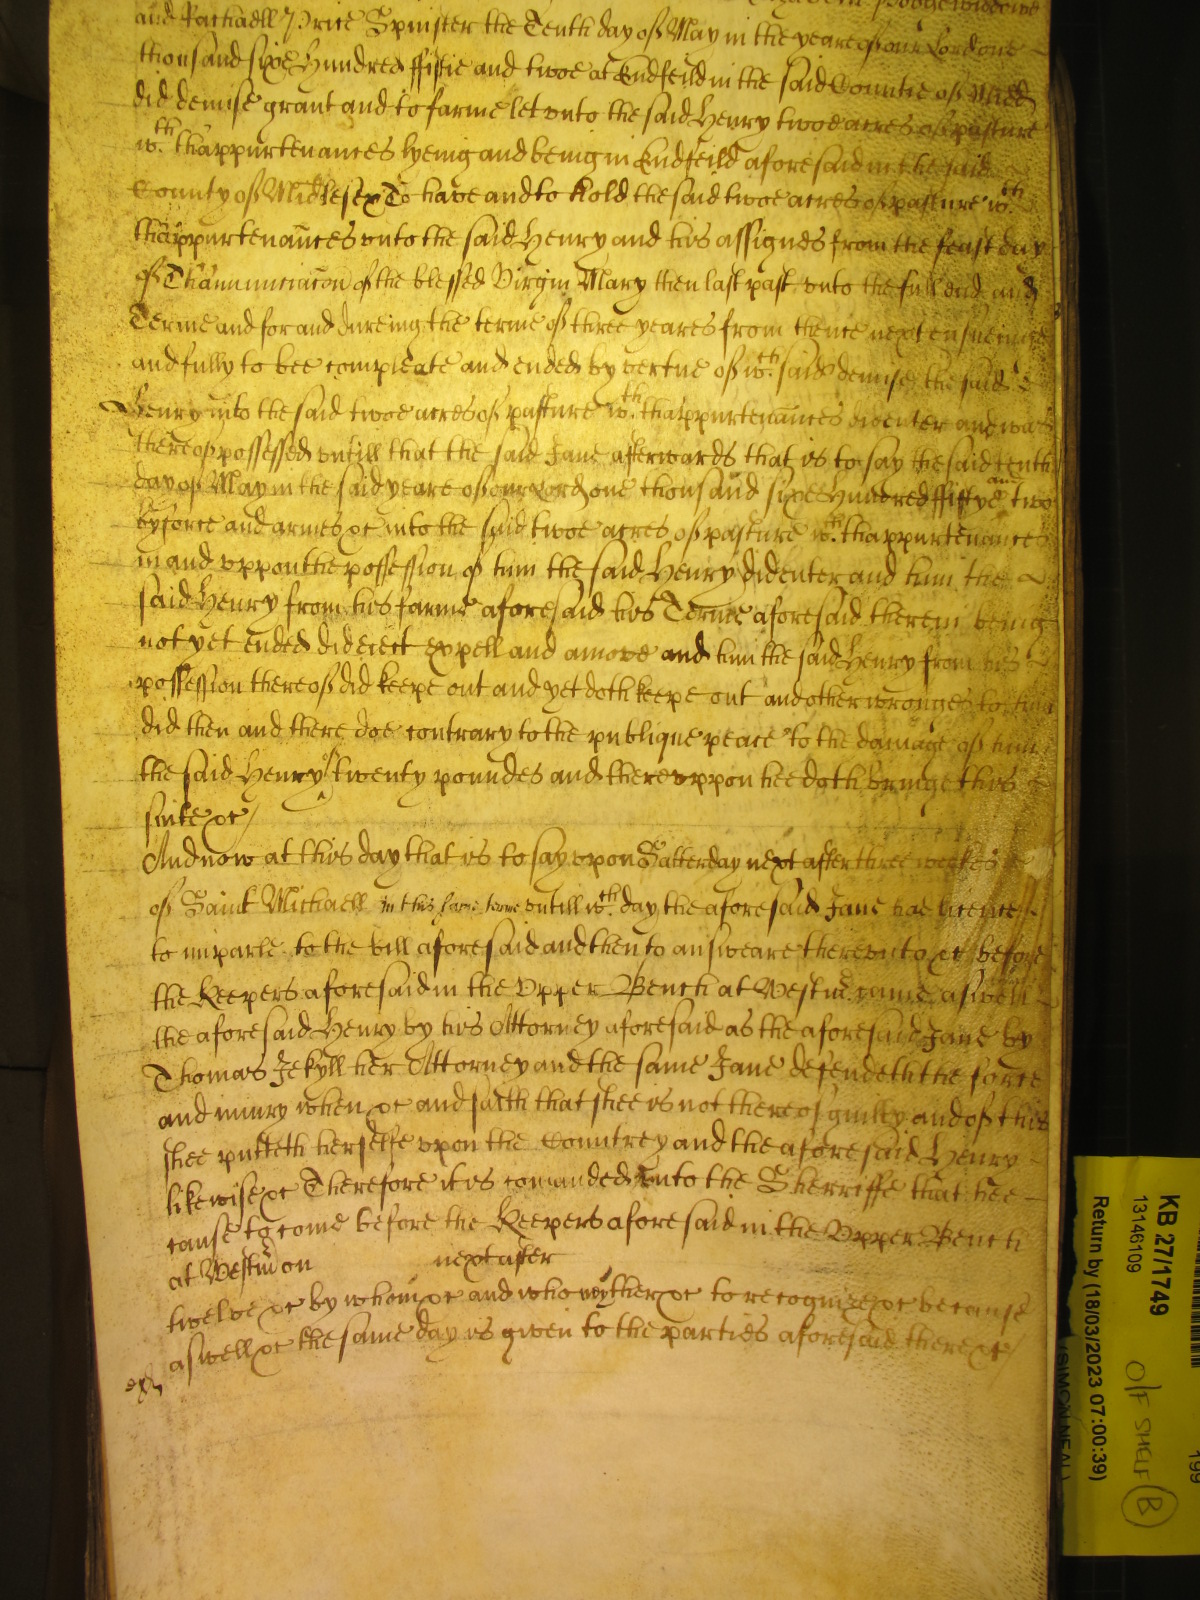 and Rachaell Price Spinster the Tenth day of May in the yeare of our Lord one
thousand sixe Hundred fiftie and twoe at Endfeild in the said Countie of Midd
did demise grant and to farme let unto the said Henry twoe acres of pasture
wth. thappurtenances lyeing and being in Endfeild aforesaid in the said
County of Midlesex To have and to hold the said twoe acres of pasture wth.
thappurtenances unto the said Henry and his assignes from the feast day
of Thannunciacon of the blessed Virgin Mary then last past unto the full end and
Terme and for and dureing the terme of three yeares from thence next ensueinge
and fully to bee compleate and ended by vertue of wch. said demise the said
Henry into the said twoe acres of pasture wth. thappurtenances did enter and was
thereof possessed untill that the said Jane afterwards that is to say the said tenth
day of May in the said yeare of our Lord one thousand sixe Hundred fiftye and two
by force and armes &c into the said twoe acres of pasture wth. thappurtenances
in and uppon the possession of him the said Henry did enter and him the
said Henry from his farme aforesaid his Terme aforesaid therein being
not yet ended did eiect expell and amove and him the said Henry from his
possession thereof did keepe out and yet doth keepe out and other wronges to him
did then and there doe contrary to the publique peace to the damage of him
the said Henry twenty poundes and thereuppon hee doth bringe this
suite &c
And now at this day that is to say upon Satterday next after three weekes
of Saint Michaell in this same terme untill wch. day the aforesaid Jane had licence
to imparle to the bill aforesaid and then to answeare thereunto &c before
the Keepers aforesaid in the Upper Bench at Westm. came aswell
the aforesaid Henry by his Attorney aforesaid as the aforesaid Jane by
Thomas Jekyll her Attorney and the same Jane defendeth the force
and iniury when &c and saith that shee is not thereof guilty and of this
shee putteth herselfe upon the Countrey and the aforesaid Henry
likewise &c Therefore it is comanded unto the Sherriffe that hee
cause to come before the Keepers aforesaid in the Upper Bench
at Westm on next after
twelve &c by whom &c and who neyther &c to recognize &c because
aswell &c the same day is given to the parties aforesaid there &c
KB 27/1749
13146109
Return by (18/03/2023 07:00:39)
(SIMON NEAL)
O/F SHELF
B
199